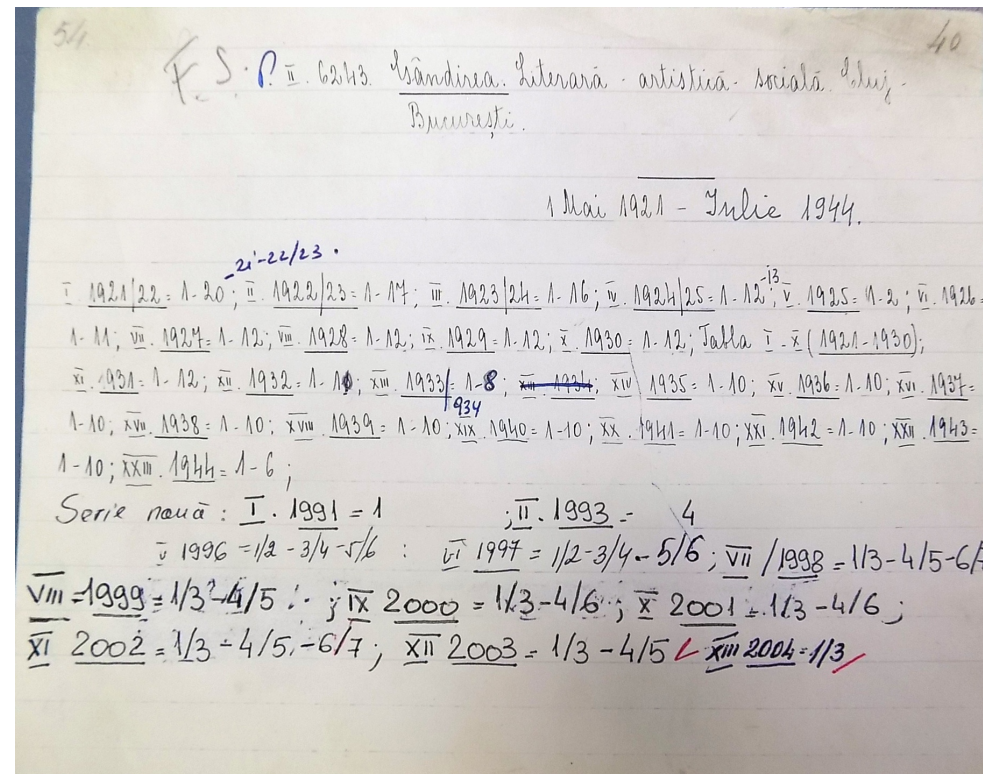 54. 40
F. S. P. II. 6243. Gândirea. Literară - artistică - socială. Cluj -
București.
1 Mai 1921 - Iulie 1944.
-21-22/23.
I. 1921/22 = 1-20; II. 1922/23 = 1-17; III. 1923/24 = 1-16; IV. 1924/25 = 1-12-13; V. 1925 = 1-2; VI. 1926 =
1-11; VII. 1927 = 1-12; VIII. 1928 = 1-12; IX. 1929 = 1-12; X. 1930 = 1-12; Tabla I-X (1921-1930);
XI. 931 = 1-12; XII. 1932 = 1-10; XIII. 1933/934 = 1-8; XIII. 1934; XIV 1935 = 1-10; XV. 1936 = 1-10; XVI. 1937 =
1-10; XVII. 1938 = 1-10; XVIII. 1939 = 1-10; XIX. 1940 = 1-10; XX. 1941 = 1-10; XXI. 1942 = 1-10; XXII. 1943 =
1-10; XXIII. 1944 = 1-6;
Serie nouă: I. 1991 = 1 ; II. 1993 = 4
V 1996 = 1/2 - 3/4 - 5/6 : VI 1997 = 1/2 - 3/4 - 5/6; VII / 1998 = 1/3 - 4/5 - 6/
VIII = 1999 = 1/3 - 4/5 ; IX 2000 = 1/3 - 4/6; X 2001 = 1/3 - 4/6;
XI 2002 = 1/3 - 4/5 - 6/7; XII 2003 = 1/3 - 4/5 XIII 2004 = 1/3